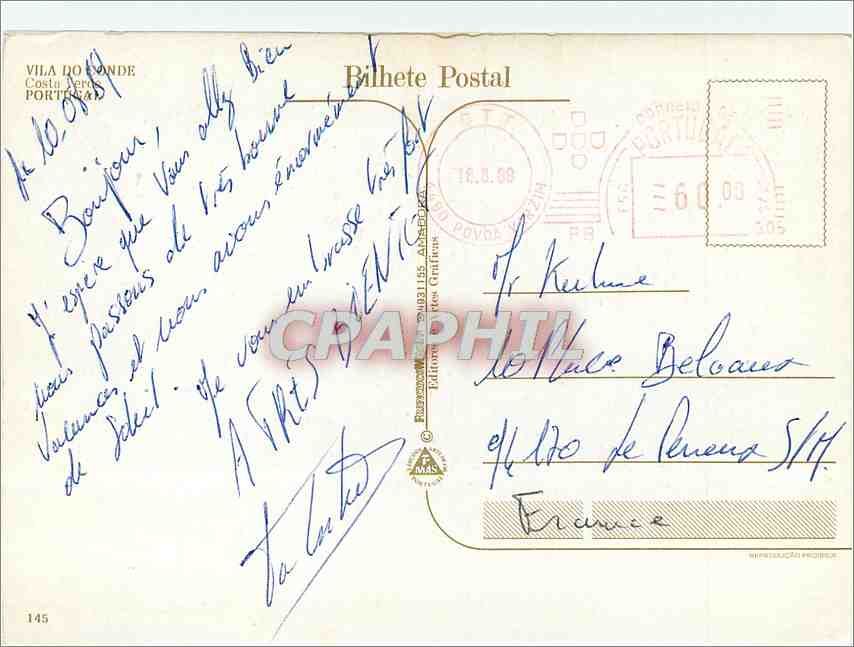 VILA DO CONDE
Costa Verde
PORTUGAL
Bilhete Postal
Le 10.08.89
Bonjour,
J'espère que vous allez bien
nous passons de très bonne
vacances et nous avons énormément
de soleil. Je vous embrasse très fort
A TRES BIENTOT
C.T.T.
18.8.89
4490 POVOA VARZIM
PB
CORREIO
PORTUGAL
ESC
60.00
© 
Editores Artes Gráficas
24931155 AMADORA
FMAS
PORTUGAL
CPAPHIL
Mr
10 Rue Belvaux
94170 Le Perreux S/M.
France
REPRODUÇÃO PROIBIDA
145